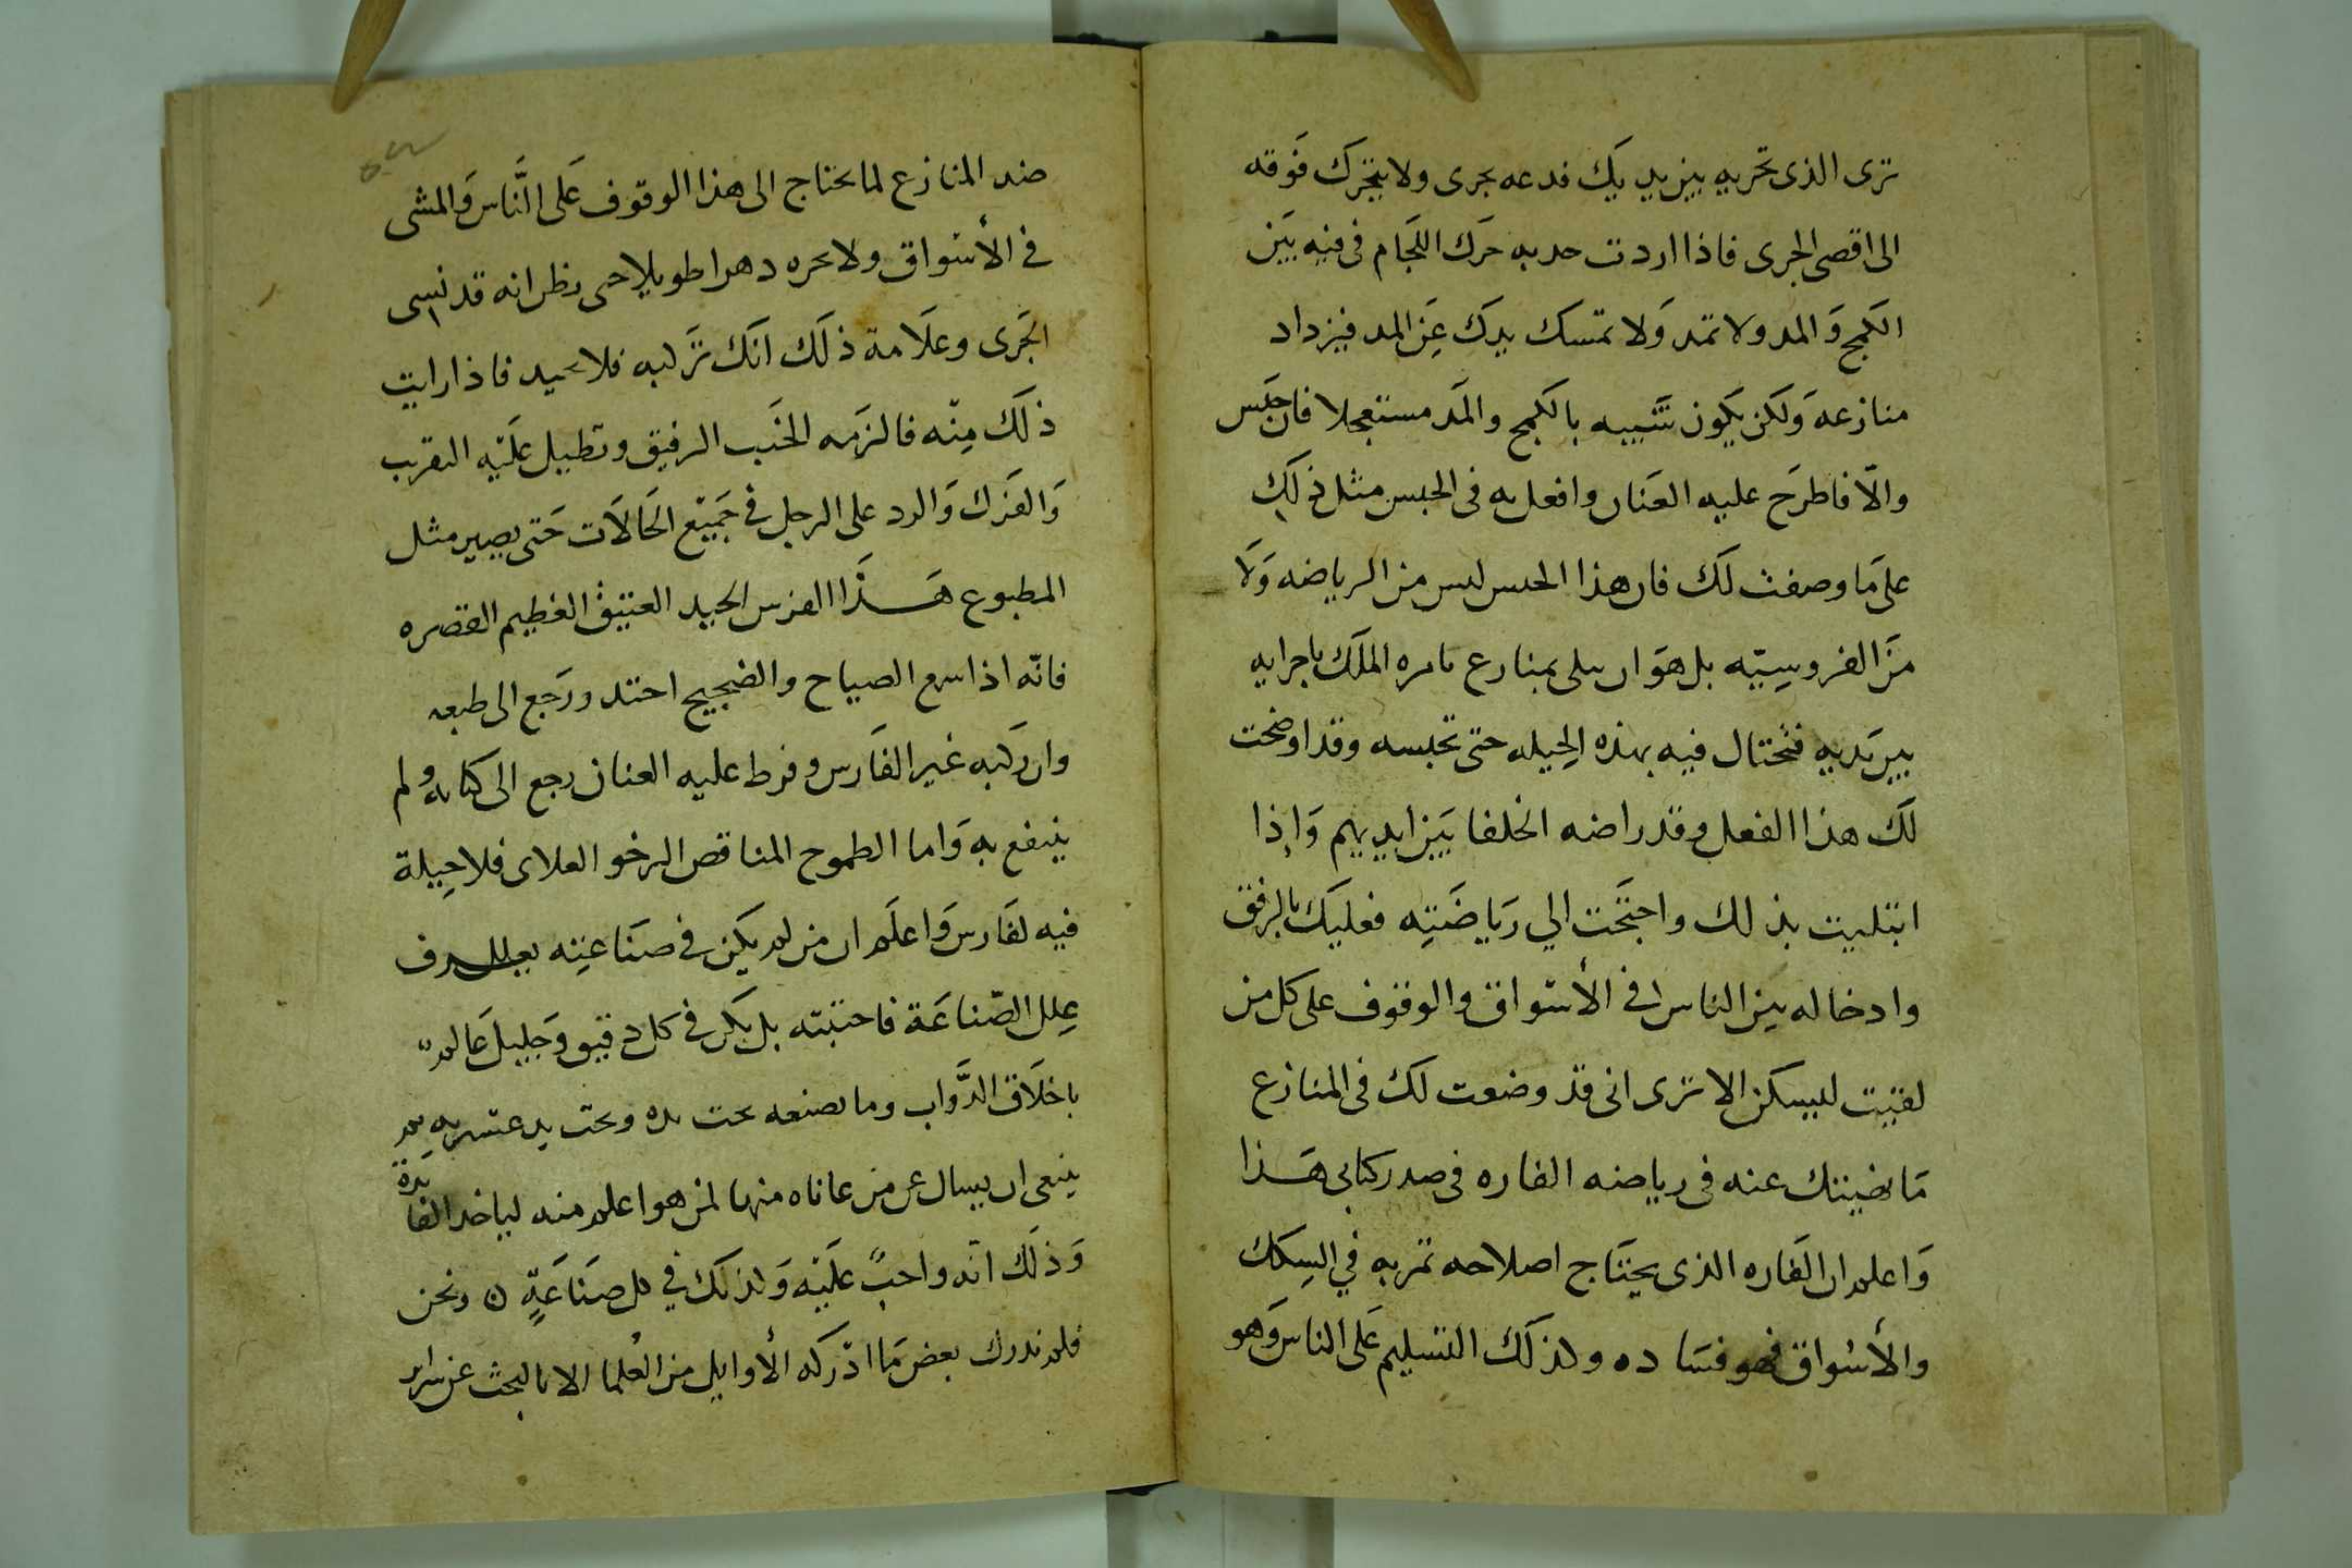 ترى الذى تجريه بين يديك فدعه يجرى ولا يتحرك فوقه
الى اقصى الجرى فاذا اردت حده به حرك اللجام فى فيه بين
الكمح والمد ولا تمد ولا تمسك يدك عن المد فيزداد
منازعه ولكن يكون تتييبه بالكمح والمد مستعجلا فان حبس
والا فاطرح عليه العنان وافعل به فى الحبس مثل ذلك
على ما وصفت لك فان هذا الحبس ليس من الرياضه ولا
من الفروسيه بل هو ان يبلى بمنازع يامره الملك باجرايه
بين يديه فتحتال فيه بهذه الحيله حتى تحبسه وقد اوضحت
لك هذا الفعل وقد راضه الخلفا بين ايديهم واذا
ابتليت بذلك واحتجت الي رياضته فعليك بالرفق
وادخاله بين الناس فى الأسواق والوقوف على كل من
لقيت ليسكن الا ترى انى قد وضعت لك فى المنازع
ما نهيتك عنه فى رياضه الفاره فى صدر كتابى هذا
واعلم ان الفاره الذى يحتاج اصلاحه تمر به في السكك
والأسواق فهو فساده وكذلك التسليم على الناس وهو
ضد المنازع لما يحتاج الى هذا الوقوف على الناس والمشى
فى الأسواق ولا تجره دهرا طويلا حتى يظن انه قد نسى
الجرى وعلامة ذلك انك تركبه فلا يحيد فاذا رايت
ذلك منه فالزمه الخبب الرفيق وتطيل عليه التقريب
والفرك والرد على الرجل فى جميع الحالات حتى يصير مثل
المطبوع هذا الفرس الجيد العتيق العظيم القصره
فانه اذا سمع الصياح والضجيج احتد ورجع الى طبعه
وان ركبه غير الفارس وفرط عليه العنان رجع الى كتابه ولم
ينتفع به واما الطموح المناقص الرخو العلاى فلا حيلة
فيه لفارس واعلم ان من لم يكن فى صناعته يعرف
علل الصناعة فاجتنبه بل يكن فى كل دقيق وجليل عالم
باخلاق الدواب وما يصنعه تحت يده وتحت يد عشيره ثم
ينبغى ان يسال عن من عاناه منها لمن هو اعلم منه لياخذ الفايدة
وذلك انه واجب عليه وكذلك في كل صناعة ن ونحن
فلم ندرك بعض ما ادركه الأوايل من العلما الا بالبحث عن سراير